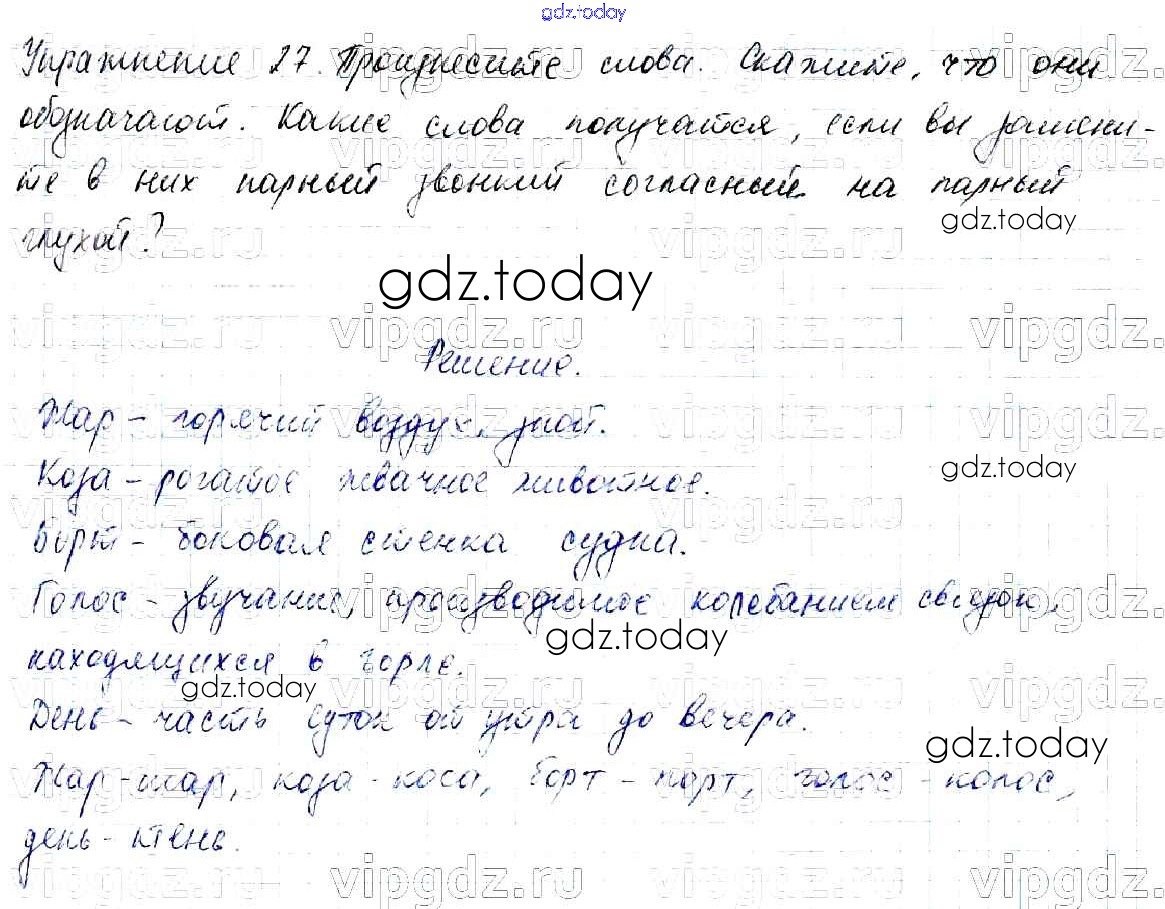 gdz.today
Упражнение 27. Произнесите слова. Скажите, что они
обозначают. Какие слова получатся, если вы замени-
те в них парный звонкий согласный на парный
глухой?
gdz.today
gdz.today
vipgdz.ru vipgdz.ru vipgdz.ru vipgdz.ru
Решение.
Жар – горячий воздух, зной.
Коза – рогатое жвачное животное.
gdz.today
Борт – боковая стенка судна.
Голос – звучание, производимое колебанием связок,
gdz.today
находящихся в горле.
gdz.today
День – часть суток от утра до вечера.
gdz.today
Жар – шар, коза – коса, борт – порт, голос – колос,
день – тень.
vipgdz.ru vipgdz.ru vipgdz.ru vipgdz.ru